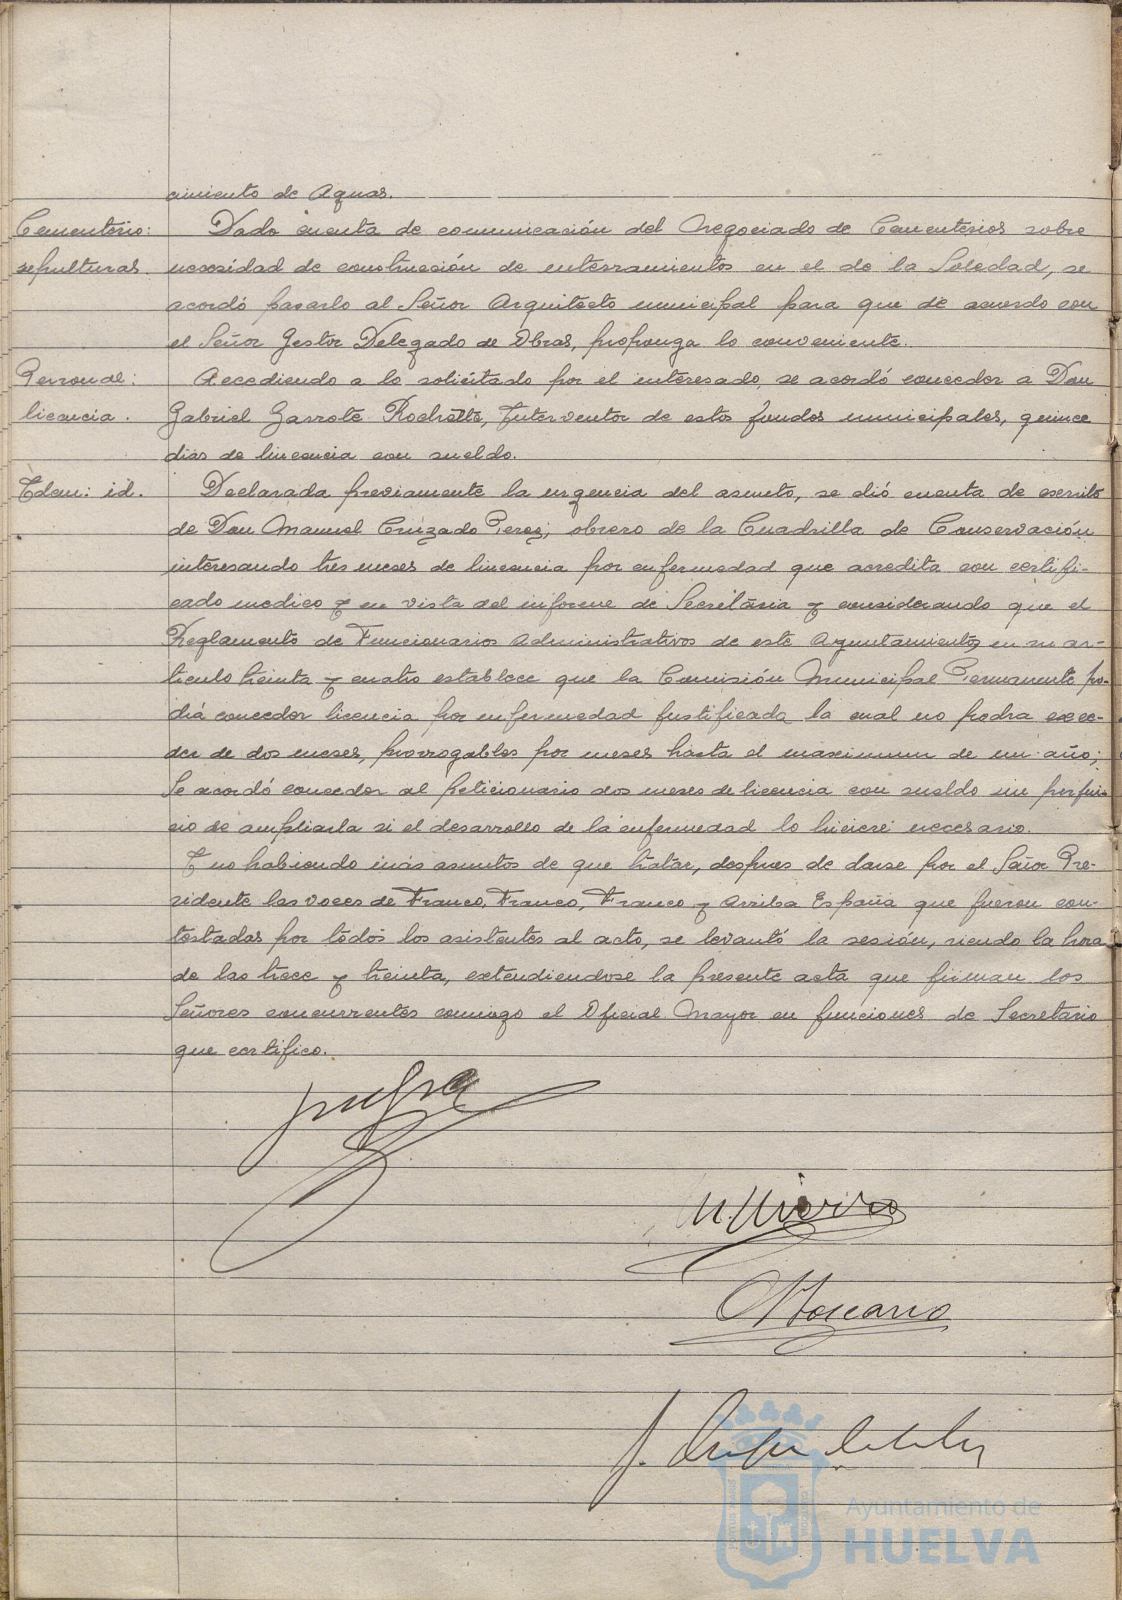 cimiento de Aguas.
Cementerio: Dada cuenta de comunicación del Negociado de Cementerios sobre
sepulturas. necesidad de construcción de enterramientos en el de la Soledad, se
acordó pasarlo al Señor Arquitecto municipal para que de acuerdo con
el Señor Gestor Delegado de Obras, proponga lo conveniente.
Personal: Accediendo a lo solicitado por el interesado, se acordó conceder a Don
licencia. Gabriel Garrote Rochette, Interventor de estos fondos municipales, quince
dias de lincencia con sueldo.
Idem: id. Declarada previamente la urgencia del asunto, se dió cuenta de escrito
de Don Manuel Cruzado Perez, obrero de la Cuadrilla de Conservación
interesando tres meses de lincencia por enfermedad que acredita con certifi-
cado medico y en vista del informe de Secretária y considerando que el
Reglamento de Funcionarios Administrativos de este Ayuntamiento, en su ar-
ticulo treinta y cuatro establece que la Comisión Municipal Permanente po-
drá conceder licencia por enfermedad justificada la cual no podra exce-
der de dos meses, prorrogables por meses hasta el maximum de un año;
Se acordó conceder al peticionario dos meses de licencia con sueldo sin perjui-
cio de ampliarla si el desarrollo de la enfermedad lo hiciere necesario.
Y no habiendo más asuntos de que tratar, despues de darse por el Señor Pre-
sidente las voces de Franco, Franco, Franco y Arriba España que fueron con-
testadas por todos los asistentes al acto, se levantó la sesión, siendo la hora
de las trece y treinta, extendiendose la presente acta que firman los
Señores concurrentes conmigo el Oficial Mayor en funciones de Secretario
que certifico.
Ayuntamiento de
HUELVA